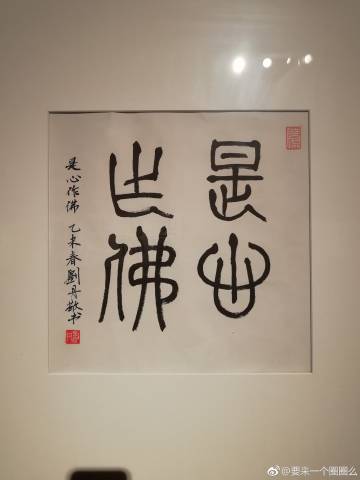 是心
作佛
是心作佛 乙未春劉丹敬书
@要来一个圈圈么